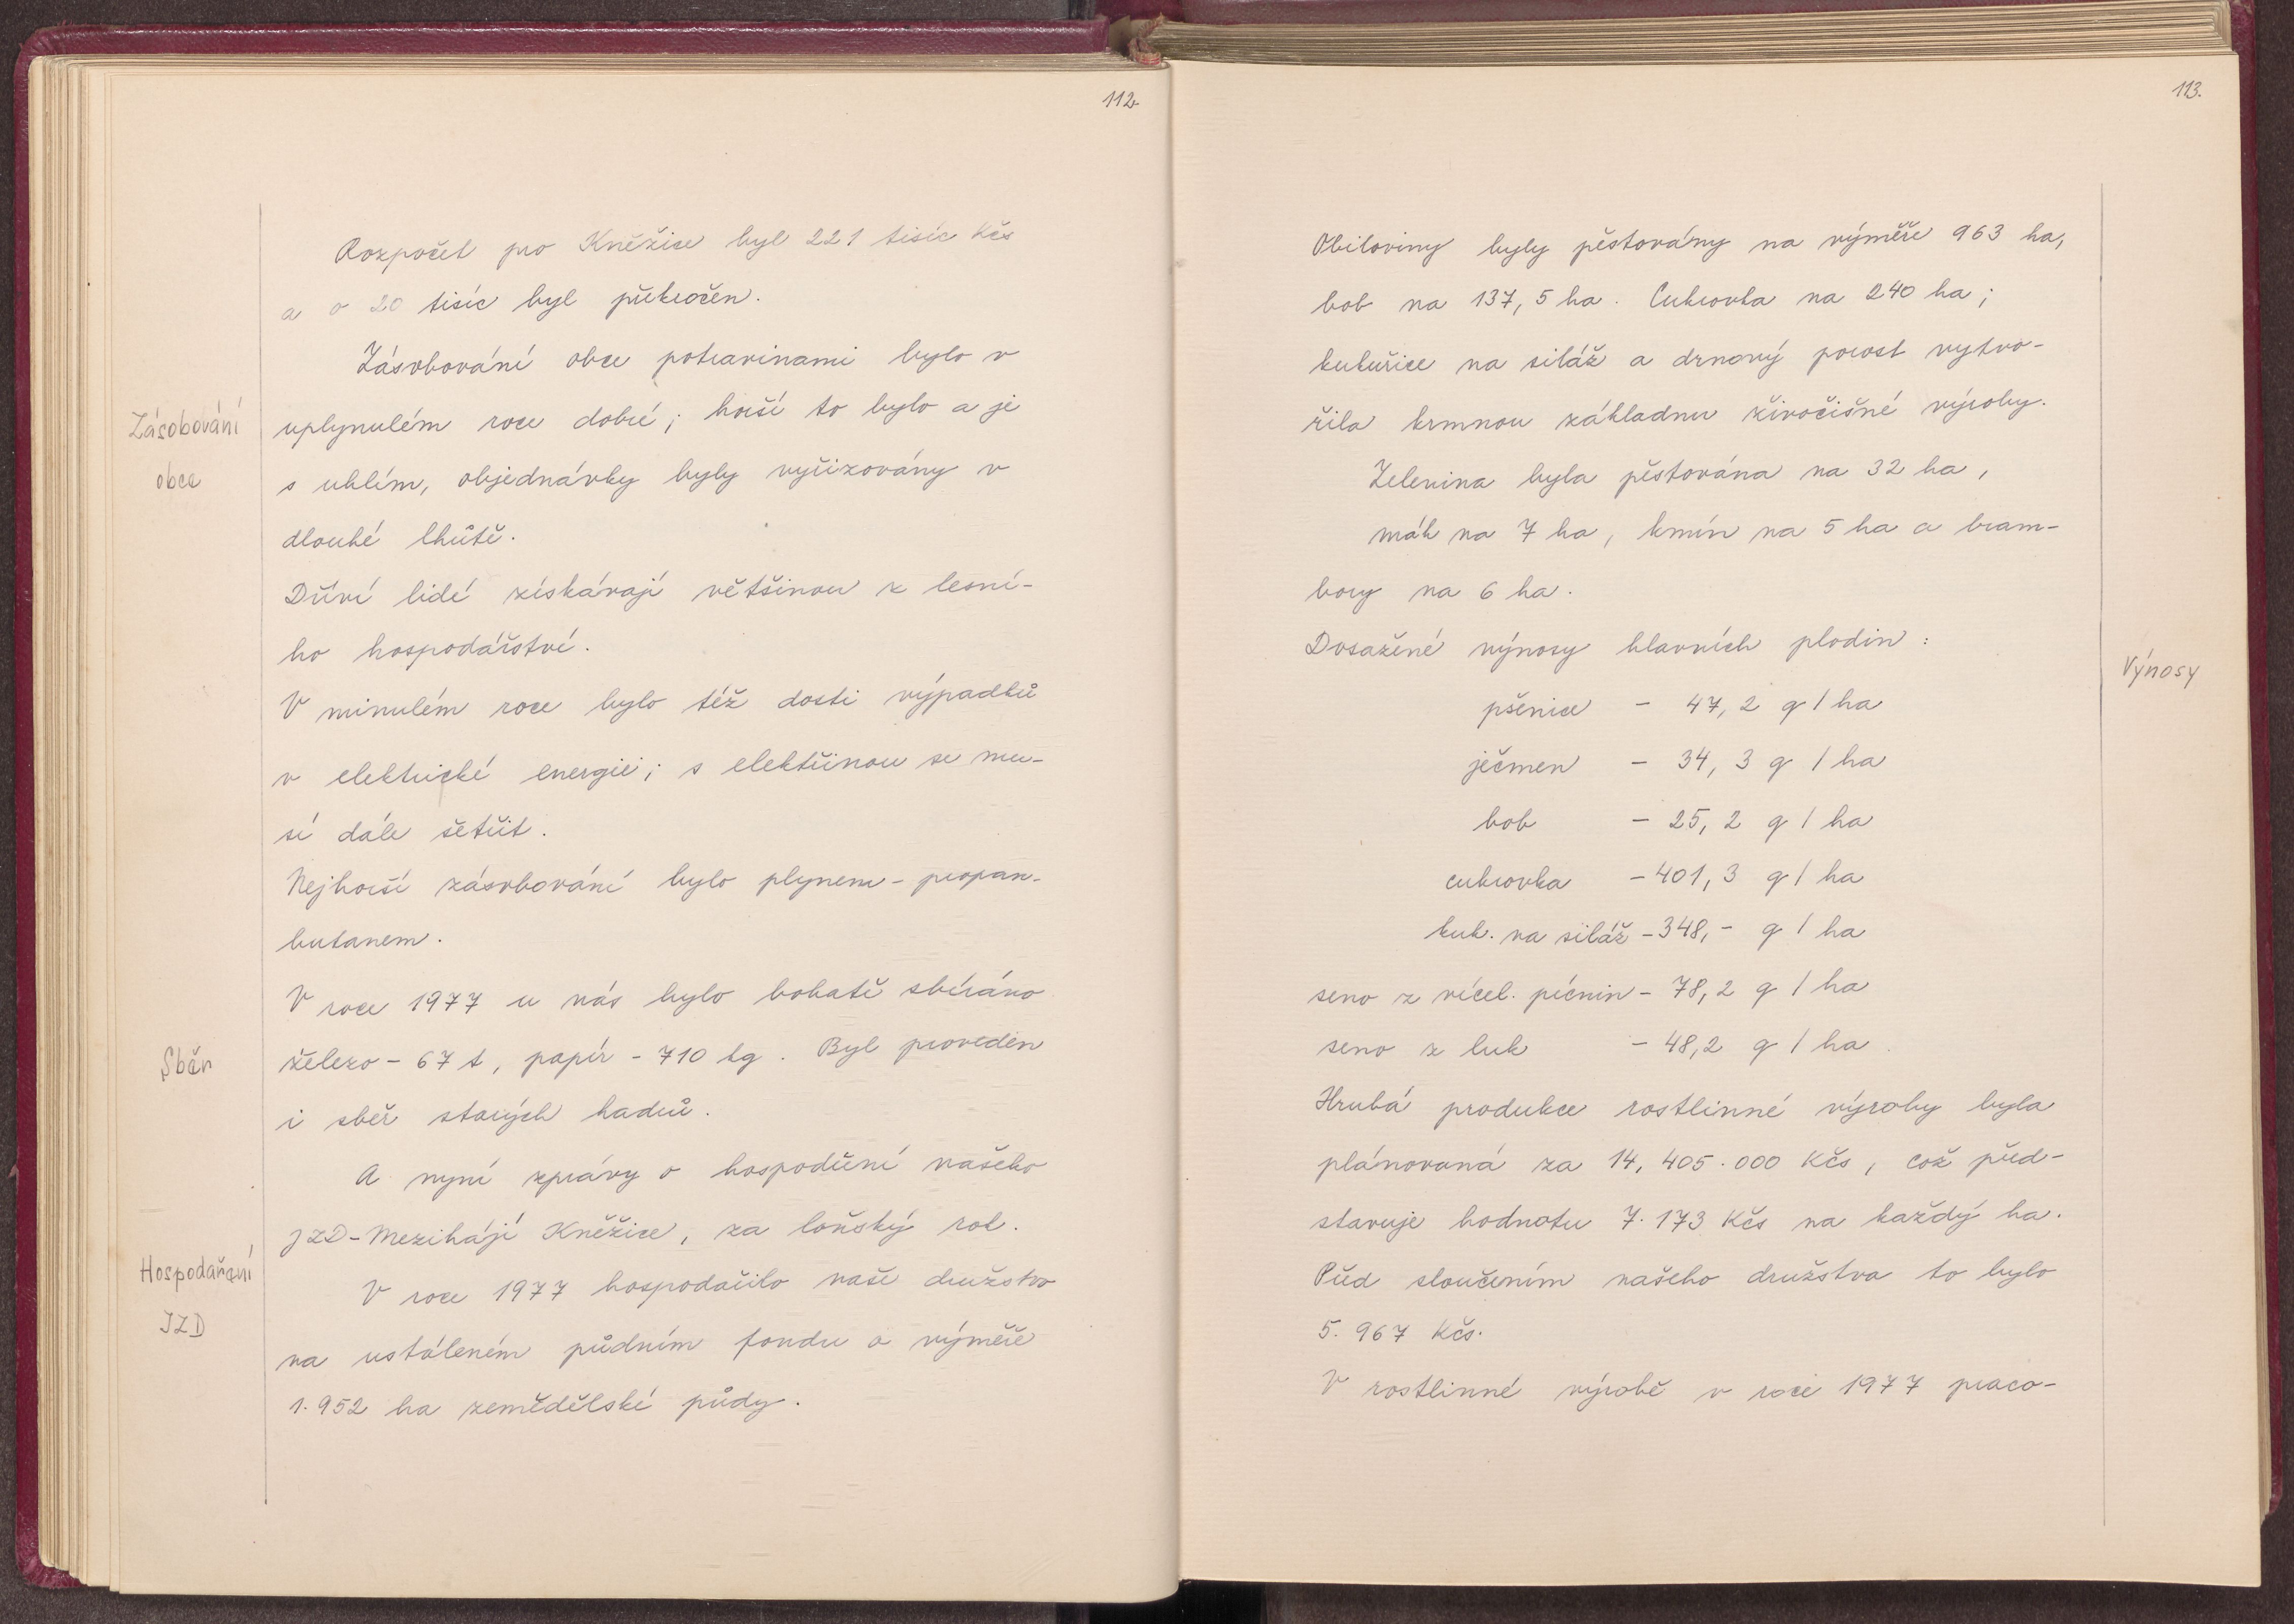 112
Rozpočet pro Kněžice byl 221 tisíc Kčs
a o 20 tisíc byl překročen.
Zásobování obce potravinami bylo v
Zásobování
uplynulém roce dobré; horší to bylo a je
obce
s uhlím, objednávky byly vyřizovány v
dlouhé lhůtě.
Dříví lidé získávají většinou z lesní-
ho hospodářství.
V minulém roce bylo též dosti výpadků
v elektrické energii; s elektřinou se mu-
sí dále šetřit.
Nejhorší zásobování bylo plynem - propan-
butanem.
V roce 1977 u nás bylo bohatě sbíráno
Sběr
železo - 67 t, papír - 710 kg. Byl proveden
i sběr starých hadrů.
A nyní zprávy o hospodření našeho
JZD - Mezihájí Kněžice, za loňský rok.
Hospodaření
JZD
V roce 1977 hospodařilo naše družstvo
na ustáleném půdním fondu o výměře
1.952 ha zemědělské půdy.
113.
Obiloviny byly pěstovány na výměře 963 ha,
bob na 137,5 ha. Cukrovka na 240 ha;
kukuřice na siláž a drnový porost vytvo-
řila krmnou základnu živočišné výroby.
Zelenina byla pěstována na 32 ha,
mák na 7 ha, kmín na 5 ha a bram-
bory na 6 ha.
Dosažené výnosy hlavních plodin:
Výnosy
pšenice - 47,2 q / ha
ječmen - 34,3 q / ha
bob - 25,2 q / ha
cukrovka - 401,3 q / ha
kuk. na siláž - 348,- q / ha
seno z vícel. pícnin - 78,2 q / ha
seno z luk - 48,2 q / ha.
Hrubá produkce rostlinné výroby byla
plánovaná za 14,405.000 Kčs, což před-
stavuje hodnotu 7.173 Kčs na každý ha.
Před sloučením našeho družstva to bylo
5.967 Kčs.
V rostlinné výrobě v roce 1977 praco-